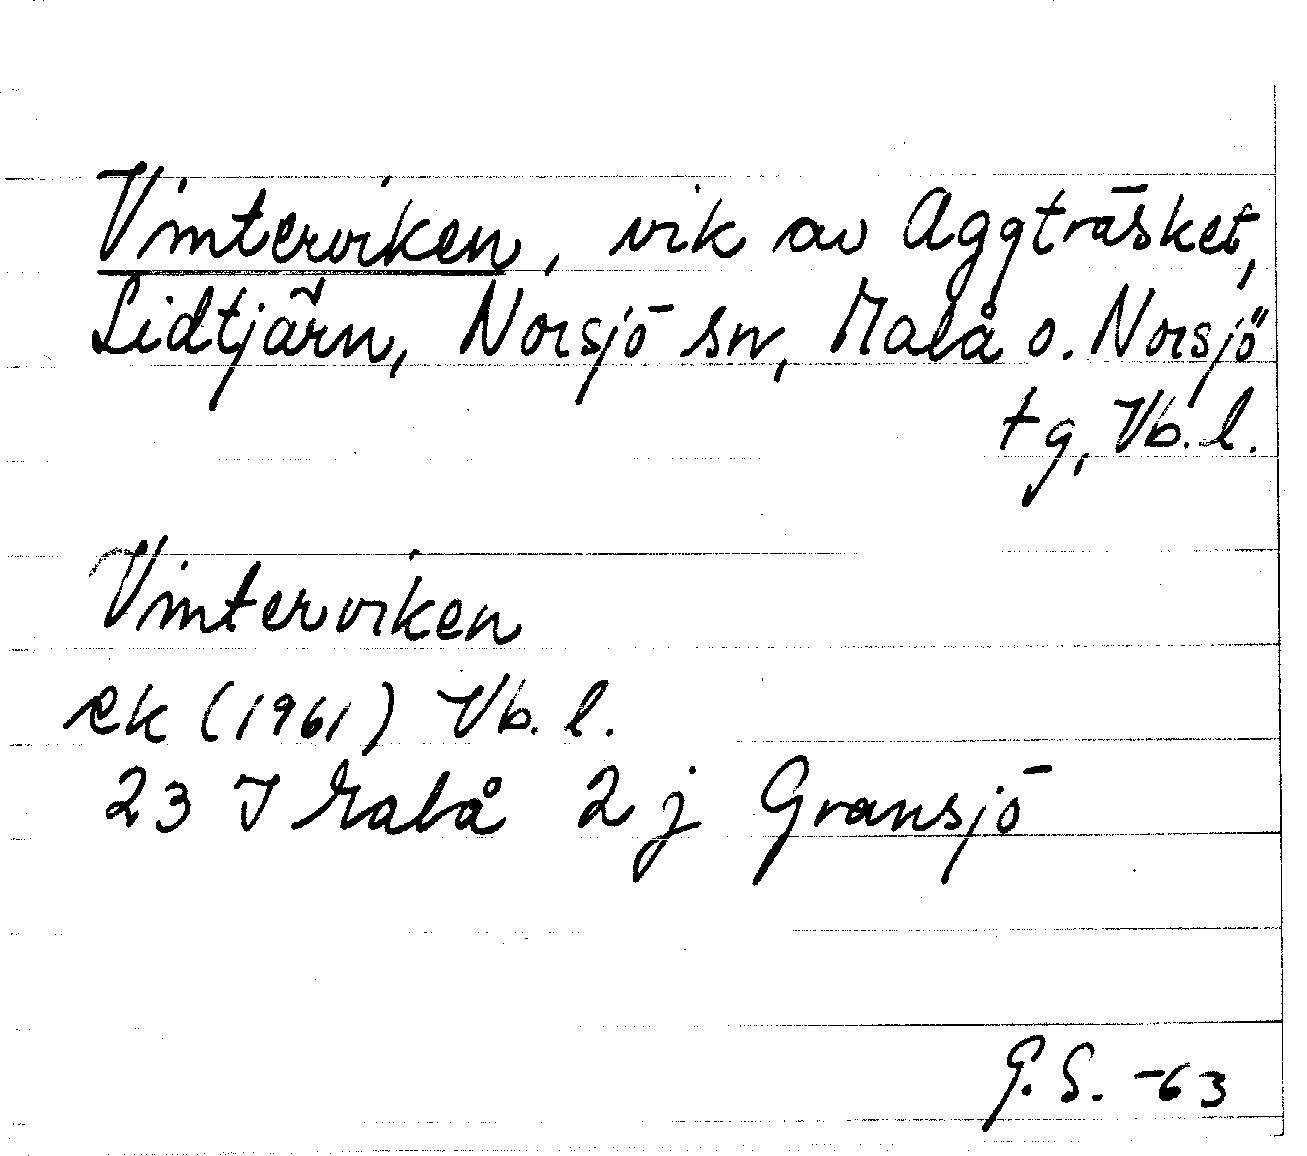 Vinterviken, vik av Aggträsket,
Lidtjärn, Norsjö sn, Malå o. Norsjö
tg, Vb. l.
Vinterviken
ek (1961) Vb. l.
23 I Malå 2 j Gransjö
G. S. -63